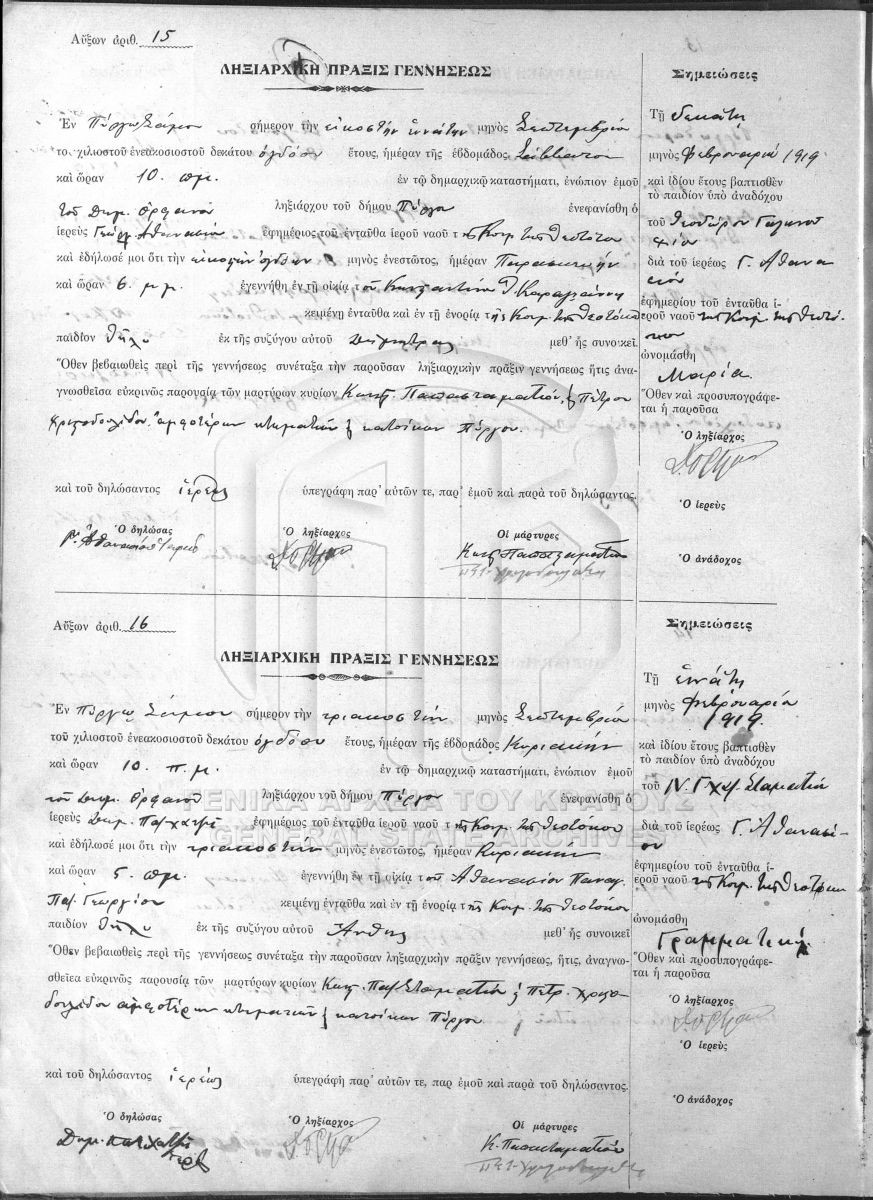 Αὔξων ἀριθ. 15
ΛΗΞΙΑΡΧΙΚΗ ΠΡΑΞΙΣ ΓΕΝΝΗΣΕΩΣ
Ἐν Πύργῳ Σάμου σήμερον τὴν εἰκοστὴν ἐννάτην μηνὸς Σεπτεμβρίου
τοῦ χιλιοστοῦ ἐνεακοσιοστοῦ δεκάτου ὀγδόου ἔτους, ἡμέραν τῆς ἑβδομάδος, Σάββατον
καὶ ὥραν 10. πμ. ἐν τῷ δημαρχικῷ καταστήματι, ἐνώπιον ἐμοῦ
τοῦ Δημ. Ὀρφανοῦ ληξιάρχου τοῦ δήμου Πύργου ἐνεφανίσθη ὁ
ἱερεὺς Γεώργ. Ἀθανασίου ἐφημέριος τοῦ ἐνταῦθα ἱεροῦ ναοῦ τῆς Κοιμ. τῆς Θεοτόκου
καὶ ἐδήλωσέ μοι ὅτι τὴν εἰκοστὴν ὀγδόην μηνὸς ἐνεστῶτος, ἡμέραν Παρασκευήν
καὶ ὥραν 6 μ.μ. ἐγεννήθη ἐν τῇ οἰκίᾳ τοῦ Κωνσταντίνου Καραγιάννη
κειμένῃ ἐνταῦθα καὶ ἐν τῇ ἐνορίᾳ τῆς Κοιμ. τῆς Θεοτόκου
παιδίον θῆλυ ἐκ τῆς συζύγου αὐτοῦ Δημήτρας μεθ' ἧς συνοικεῖ.
Ὅθεν βεβαιωθεὶς περὶ τῆς γεννήσεως συνέταξα τὴν παροῦσαν ληξιαρχικὴν πρᾶξιν γεννήσεως ἥτις ἀνα-
γνωσθεῖσα εὐκρινῶς παρουσίᾳ τῶν μαρτύρων κυρίων Κωνς. Παπασταματίου, & Πέτρου
Χρυσοδουλίδου ἀμφοτέρων κτηματιῶν & κατοίκων Πύργου.
καὶ τοῦ δηλώσαντος ἱερέως ὑπεγράφη παρ' αὐτῶν τε, παρ' ἐμοῦ καὶ παρὰ τοῦ δηλώσαντος.
Ὁ δηλώσας Ὁ ληξίαρχος Οἱ μάρτυρες
Κωνς. Παπασταματίου
Σημειώσεις
Τῇ δεκάτῃ
μηνὸς Φεβρουαρίου 1919
καὶ ἰδίου ἔτους βαπτισθὲν
τὸ παιδίον ὑπὸ ἀναδόχου
τοῦ Θεοδώρου
διὰ τοῦ ἱερέως Γ. Ἀθανα
σίου
ἐφημερίου τοῦ ἐνταῦθα ἱ-
εροῦ ναοῦ τῆς Κοιμ. τῆς Θεοτό-
κου
ὠνομάσθη
Μαρία.
Ὅθεν καὶ προσυπογράφε-
ται ἡ παροῦσα
Ὁ ληξίαρχος
Ὁ ἱερεὺς
Ὁ ἀνάδοχος
Αὔξων ἀριθ. 16
ΛΗΞΙΑΡΧΙΚΗ ΠΡΑΞΙΣ ΓΕΝΝΗΣΕΩΣ
Ἐν Πύργῳ Σάμου σήμερον τὴν τριακοστὴν μηνὸς Σεπτεμβρίου
τοῦ χιλιοστοῦ ἐνεακοσιοστοῦ δεκάτου ὀγδόου ἔτους, ἡμέραν τῆς ἑβδομάδος Κυριακὴν
καὶ ὥραν 10. π.μ. ἐν τῷ δημαρχικῷ καταστήματι, ἐνώπιον ἐμοῦ
τοῦ Δημ. Ὀρφανοῦ ληξιάρχου τοῦ δήμου Πύργου ἐνεφανίσθη ὁ
ἱερεὺς Δημ. Παπχατζῆ ἐφημέριος τοῦ ἐνταῦθα ἱεροῦ ναοῦ τῆς Κοιμ. τῆς Θεοτόκου
καὶ ἐδήλωσέ μοι ὅτι τὴν τριακοστὴν μηνὸς ἐνεστῶτος, ἡμέραν Κυριακὴν
καὶ ὥραν 5. πμ. ἐγεννήθη ἐν τῇ οἰκίᾳ τοῦ Ἀθανασίου Παναγ.
Παπ. Γεωργίου κειμένῃ ἐνταῦθα καὶ ἐν τῇ ἐνορίᾳ τῆς Κοιμ. τῆς Θεοτόκου
παιδίον θῆλυ ἐκ τῆς συζύγου αὐτοῦ Ἀνθῆς μεθ' ἧς συνοικεῖ
Ὅθεν βεβαιωθεὶς περὶ τῆς γεννήσεως συνέταξα τὴν παροῦσαν ληξιαρχικὴν πρᾶξιν γεννήσεως, ἥτις, ἀναγνω-
σθεῖσα εὐκρινῶς παρουσίᾳ τῶν μαρτύρων κυρίων Κωνς. Παπσταματίου & Πετρ. Χρυσο-
δουλίδου ἀμφοτέρων κτηματιῶν & κατοίκων Πύργου
καὶ τοῦ δηλώσαντος ἱερέως ὑπεγράφη παρ' αὐτῶν τε, παρ ἐμοῦ καὶ παρὰ τοῦ δηλώσαντος.
Ὁ δηλώσας Ὁ ληξίαρχος Οἱ μάρτυρες
Δημ. Παπχατζῆ Κ. Παπασταματίου
Σημειώσεις
Τῇ ἐννάτῃ
μηνὸς Φεβρουαρίου
1919
καὶ ἰδίου ἔτους βαπτισθὲν
τὸ παιδίον ὑπὸ ἀναδόχου
τοῦ Ν. Γ. Χ΄΄Σταματίου
διὰ τοῦ ἱερέως Γ. Ἀθανασί-
ου
ἐφημερίου τοῦ ἐνταῦθα ἱ-
εροῦ ναοῦ τῆς Κοιμ. τῆς Θεοτόκου
ὠνομάσθη
Γραμματική.
Ὅθεν καὶ προσυπογράφε-
ται ἡ παροῦσα
Ὁ ληξίαρχος
Ὁ ἱερεὺς
Ὁ ἀνάδοχος
ΓΕΝΙΚΑ ΑΡΧΕΙΑ ΤΟΥ ΚΡΑΤΟΥΣ
GENERAL STATE ARCHIVES